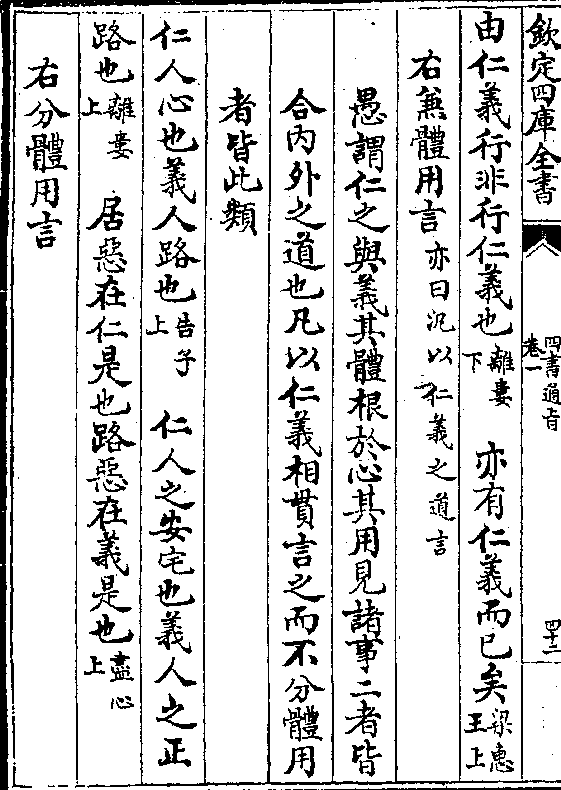 欽定四庫全書
四書通旨
卷一
四十二
由仁義行非行仁義也離婁下　亦有仁義而已矣梁惠王上
右兼體用言亦曰汎以仁義之道言
愚謂仁之與義其體根於心其用見諸事二者皆
合内外之道也凡以仁義相貫言之而不分體用
者皆此類
仁人心也義人路也告子上　仁人之安宅也義人之正
路也離婁上　居惡在仁是也路惡在義是也盡心上
右分體用言